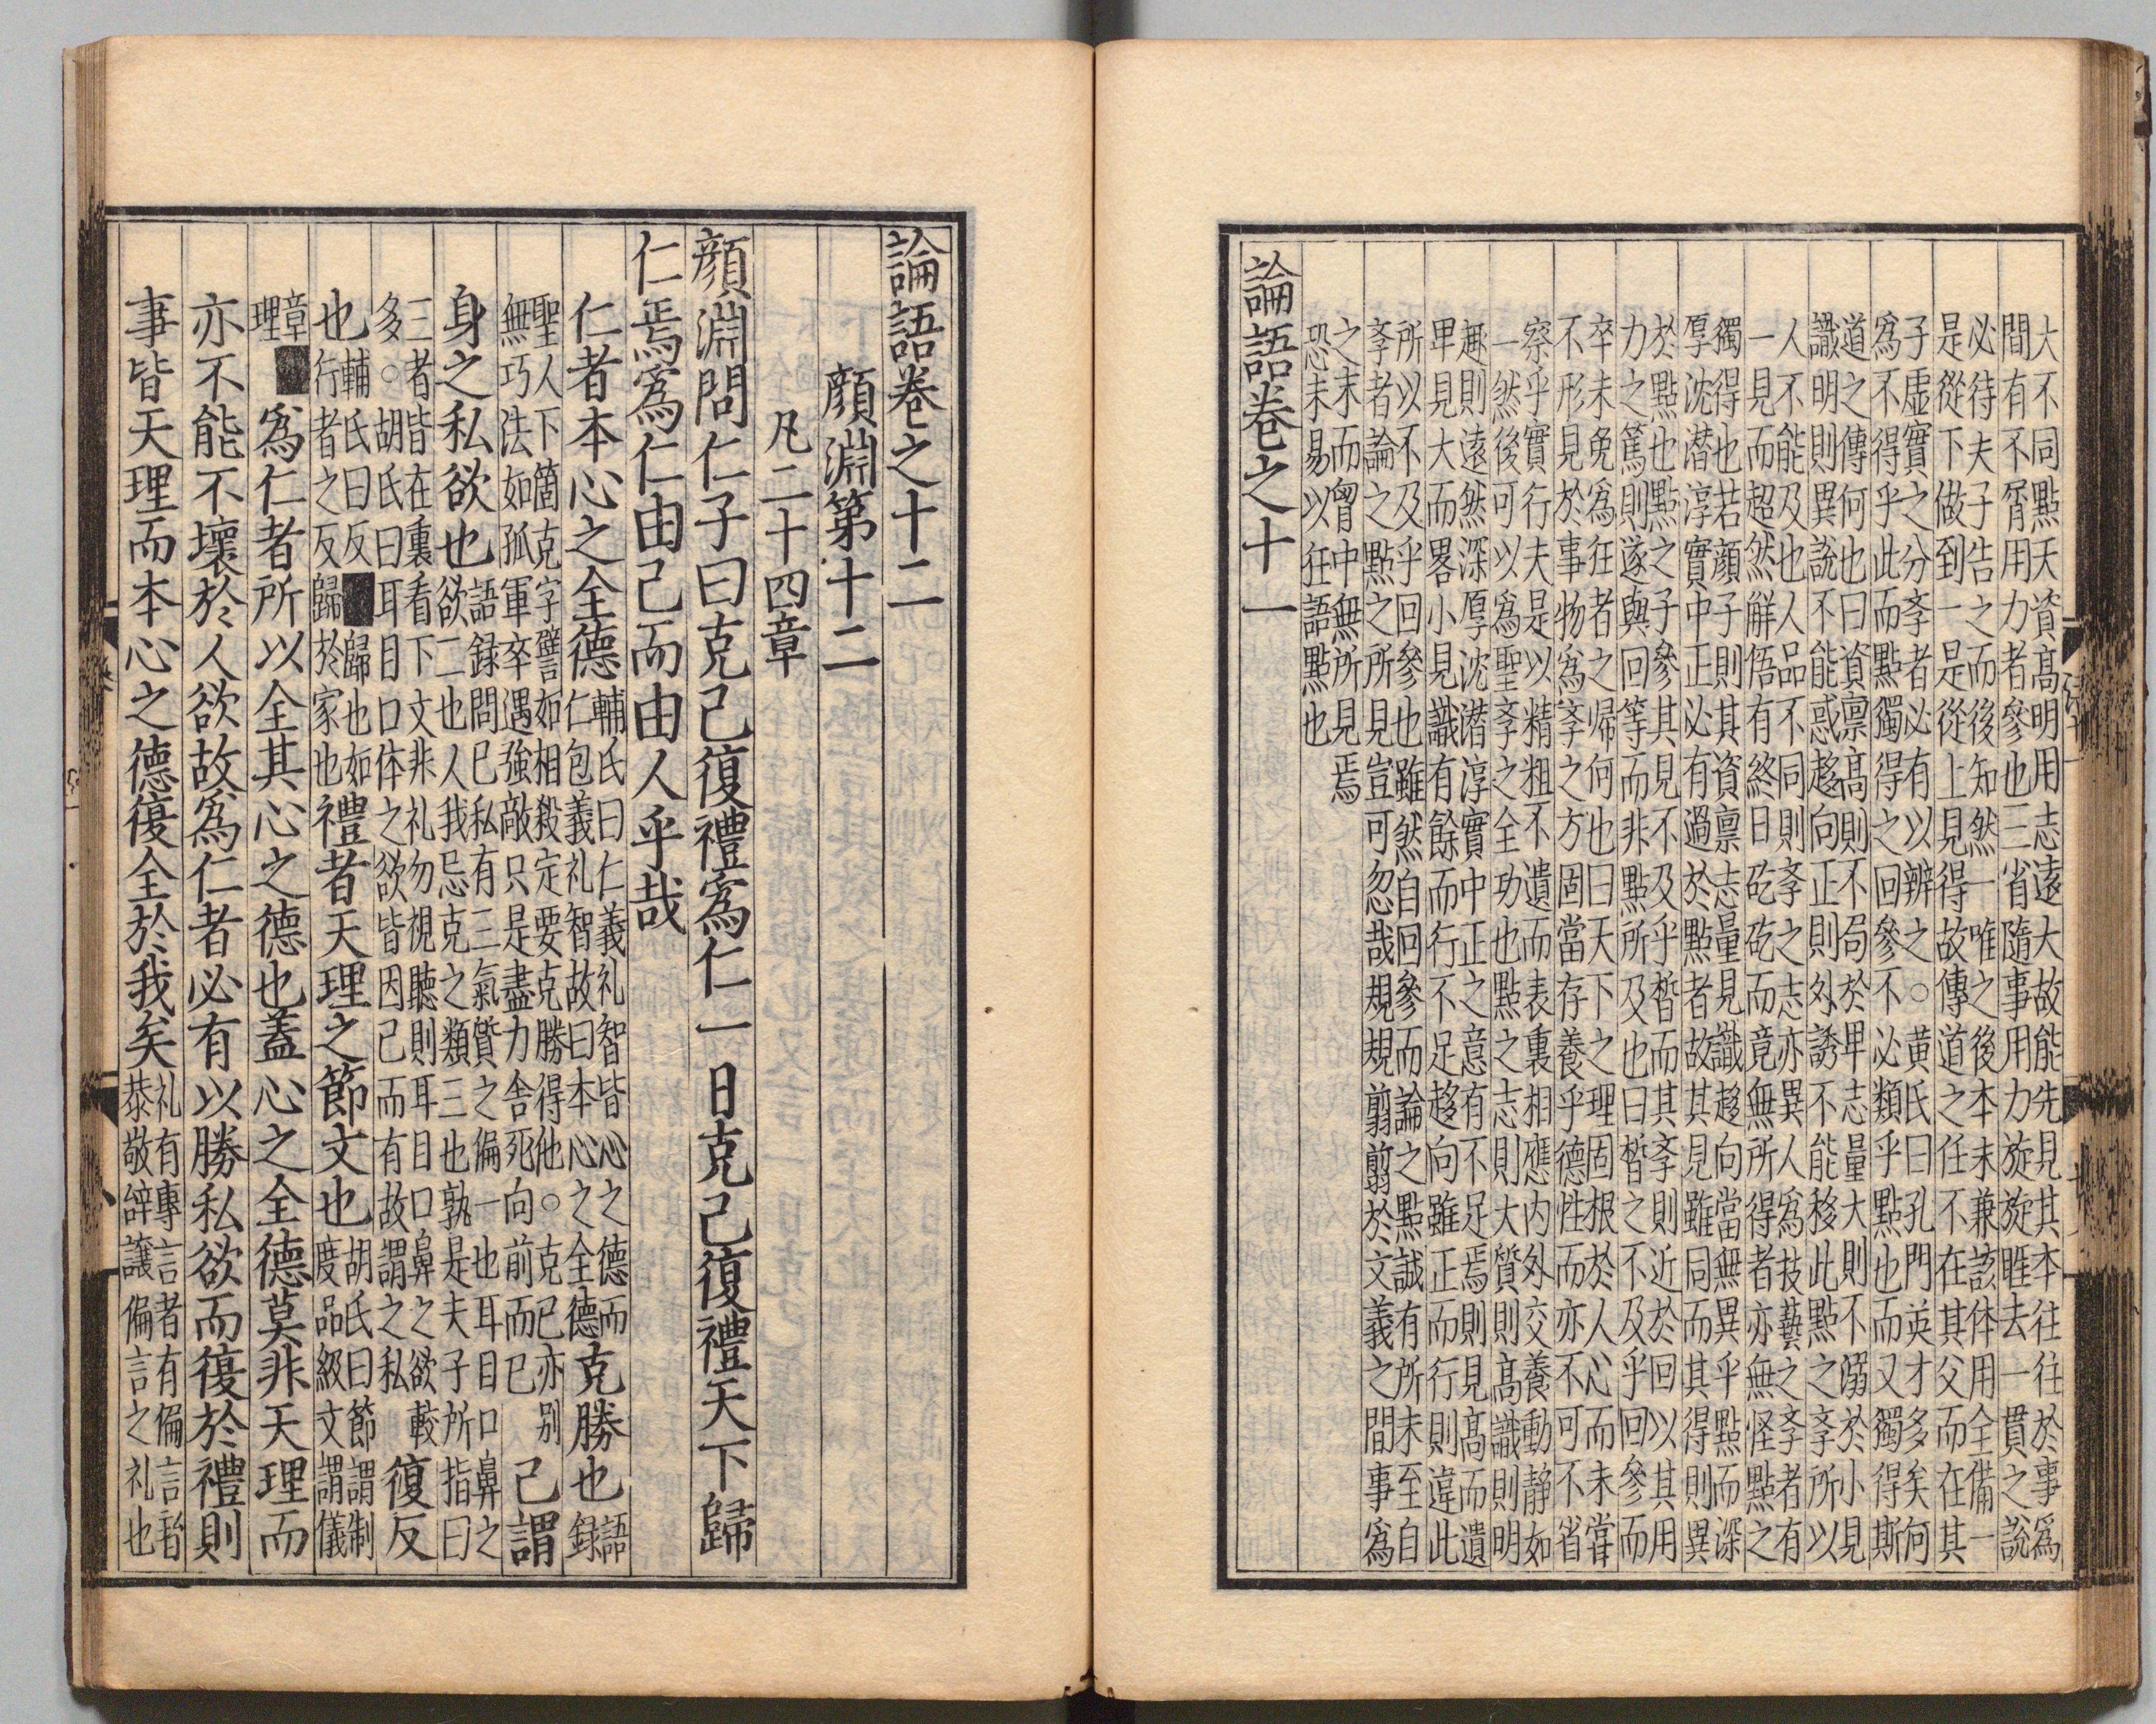 大不同點天資髙明用志遠大故能先見其本往往於事爲
間有不屑用力者參也三省隨事用力旋旋睚去一貫之說
必待夫子告之而後知然一唯之後本末兼該体用全備一
是從下做到一是從上見得故傳道之任不在其父而在其
子虛實之分斈者必有以辨之○黄氏曰孔門英才多矣何
爲不得乎此而點獨得之回參不必類乎點也而又獨得斯
道之傳何也曰資禀髙則不局於卑志量大則不溺於小見
識明則異說不能惑趍向正則外誘不能移此點之斈所以
人不能及也人品不同則斈之志亦異人爲技藝之斈者有
一見而超然觧悟有終日矻矻而竟無所得者亦無怪點之
獨得也若顏子則其資禀志量見識趍向當無異乎點而深
厚沈潜淳實中正必有過於點者故其見雖同而其得則異
於點也點之子參其見不及乎晳而其斈則近於回以其用
力之篤則遂與回等而非點所及也曰晳之不及乎回參而
卒未免爲狂者之帰何也曰天下之理固根於人心而未甞
不形見於事物爲斈之方固當存養乎德性而亦不可不省
察乎實行夫是以精粗不遺而表裏相應内外交養動静如
一然後可以爲聖斈之全功也點之志則大質則髙識則明
趣則遠然深厚沈潜淳實中正之意有不足焉則見髙而遺
卑見大而畧小見識有餘而行不足趍向雖正而行則違此
所以不及乎回參也雖然自回參而論之點誠有所未至自
斈者論之點之所見豈可忽哉規規翦翦於文義之間事爲
之末而胷中無所見焉
恐未易以狂語點也
論語卷之十一
論語卷之十二
顏淵第十二
凡二十四章
顏淵問仁子曰克己復禮爲仁一日克己復禮天下歸
仁焉爲仁由己而由人乎哉
仁者本心之全德輔氏曰仁義礼智皆心之德而仁包義礼智故曰本心之全德克勝也語録
聖人下箇克字譬如相殺定要克勝得他○克已亦别無巧法如孤軍卒遇強敵只是盡力舎死向前而已己謂
身之私欲也語録問已私有三氣質之偏一也耳目口鼻之欲二也人我忌克之類三也孰是夫子所指曰
三者皆在裏看下文非礼勿視聽則耳目口鼻之欲較多○胡氏曰耳目口体之欲皆因己而有故謂之私復反
也輔氏曰反歸也如行者之反歸於家也禮者天理之節文也胡氏曰節謂制度品級文謂儀
章理爲仁者所以全其心之德也蓋心之全德莫非天理而
亦不能不壞於人欲故爲仁者必有以勝私欲而復於禮則
事皆天理而本心之德復全於我矣礼有專言者有偏言者恭敬辭譲偏言之礼也